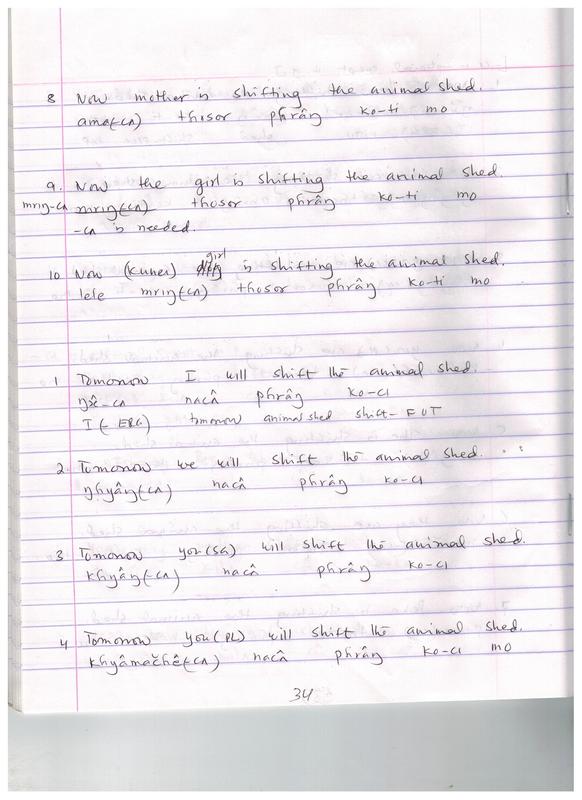 8 Now mother is shifting the animal shed.
ama(-cʌ) thosor phrâŋ ko-ti mo
9. Now the girl is shifting the animal shed.
mrıŋ-cʌ mrıŋ(cʌ) thosor phrâŋ ko-ti mo
-cʌ is needed.
10 Now (kunei) girl is shifting the animal shed.
lele mrıŋ(cʌ) thosor phrâŋ ko-ti mo
1 Tomorrow I will shift the animal shed.
-cʌ nacʌ̂ phrâŋ ko-cı
I (-ERG) tmorrow animal shed shift-FUT
2. Tomorrow we will shift the animal shed.
ŋhyâŋ(cʌ) nacʌ̂ phrâŋ ko-cı
3 Tomorrow you(SG) will shift the animal shed.
khyâŋ(-cʌ) nacʌ̂ phrâŋ ko-cı
4 Tomorrow you(PL) will shift the animal shed.
khyâmačhê(-cʌ) nacʌ̂ phrâŋ ko-cı mo
34